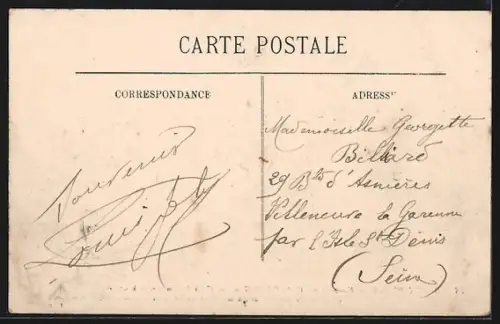 CARTE POSTALE
CORRESPONDANCE
ADRESSE
Souvenir
Mademoiselle Georgette
Billard
29 Bd d'Asnières
Villeneuve la Garenne
par l'Isle St Denis
(Seine)